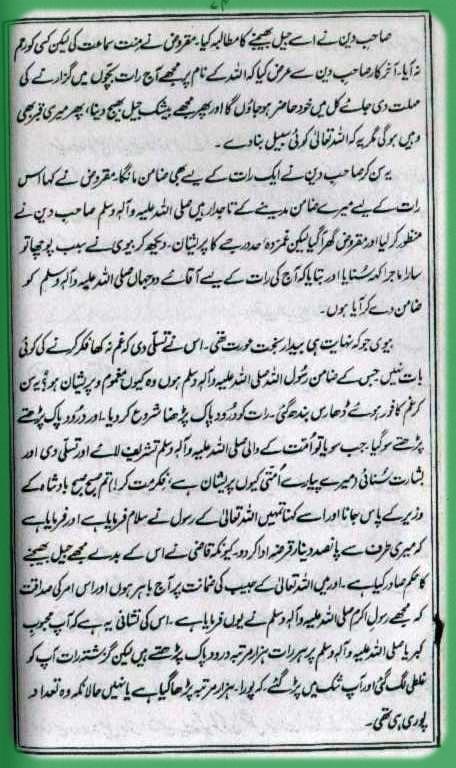 صاحب دین نے اسے جیل بھیجنے کا مطالبہ کیا۔ مقروض نے منت سماعت کی لیکن کسی کو رحم
نہ آیا۔ آخر کار صاحب دین سے عرض کیا کہ اللہ کے نام پر مجھے آج رات بچوں میں گزارنے کی
مہلت دی جائے کل میں خود حاضر ہو جاؤں گا اور پھر مجھے بیشک جیل بھیج دینا، پھر میری قبر بھی
وہیں ہوگی مگر یہ کہ اللہ تعالیٰ کوئی سبیل بنا دے۔
یہ سن کر صاحب دین نے ایک رات کے لیے بھی ضامن مانگا، مقروض نے کہا اس
رات کے لیے میرے ضامن مدینے کے تاجدار ہیں صلی اللہ علیہ وآلہ وسلم صاحب دین نے
منظور کر لیا اور مقروض گھر آگیا لیکن غمزدہ حد درجے کا پریشان۔ دیکھ کر بیوی نے سبب پوچھا تو
سارا ماجرا کہہ سنایا اور بتایا کہ آج کی رات کے لیے آقائے دو جہاں صلی اللہ علیہ وآلہ وسلم کو
ضامن دے کر آیا ہوں۔
بیوی جو کہ نہایت ہی بیدار بخت عورت تھی۔ اس نے تسلی دی کہ غم نہ کھا، فکر کرنے کی کوئی
بات نہیں جس کے ضامن رسول اللہ صلی اللہ علیہ وآلہ وسلم ہوں وہ کیوں مغموم و پریشان ہو؟ یہ سن
کر غم کافور ہوئے ڈھارس بندھ گئی۔ رات کو درود پاک پڑھنا شروع کر دیا۔ اور درود پاک پڑھتے
پڑھتے سو گیا، جب سویا تو امت کے والی صلی اللہ علیہ وآلہ وسلم تشریف لائے اور تسلی دی اور
بشارت سنائی (میرے پیارے امتی کیوں پریشان ہے؛ فکر مت کر) تم صبح صبح بادشاہ کے
وزیر کے پاس جانا اور اسے کہنا تمہیں اللہ تعالیٰ کے رسول نے سلام فرمایا ہے اور فرمایا ہے
کہ میری طرف سے پانصد دینار قرضہ ادا کر دو۔ کیونکہ قاضی نے اس کے بدلے مجھے جیل بھیجنے
کا حکم صادر کیا ہے۔ اور میں اللہ تعالیٰ کے حبیب کی ضمانت پر آج باہر ہوں اور اس امر کی صداقت
کہ مجھے رسول اکرم صلی اللہ علیہ وآلہ وسلم نے یوں فرمایا ہے۔ اس کی نشانی یہ ہے کہ آپ محبوب
کبریا صلی اللہ علیہ وآلہ وسلم پر ہر رات ہزار مرتبہ درود پاک پڑھتے ہیں لیکن گزشتہ رات آپ کو
غلطی لگ گئی اور آپ شک میں پڑ گئے، کہ پورا۔ ہزار مرتبہ پڑھا گیا ہے یا نہیں حالانکہ وہ تعداد
پوری ہی تھی۔